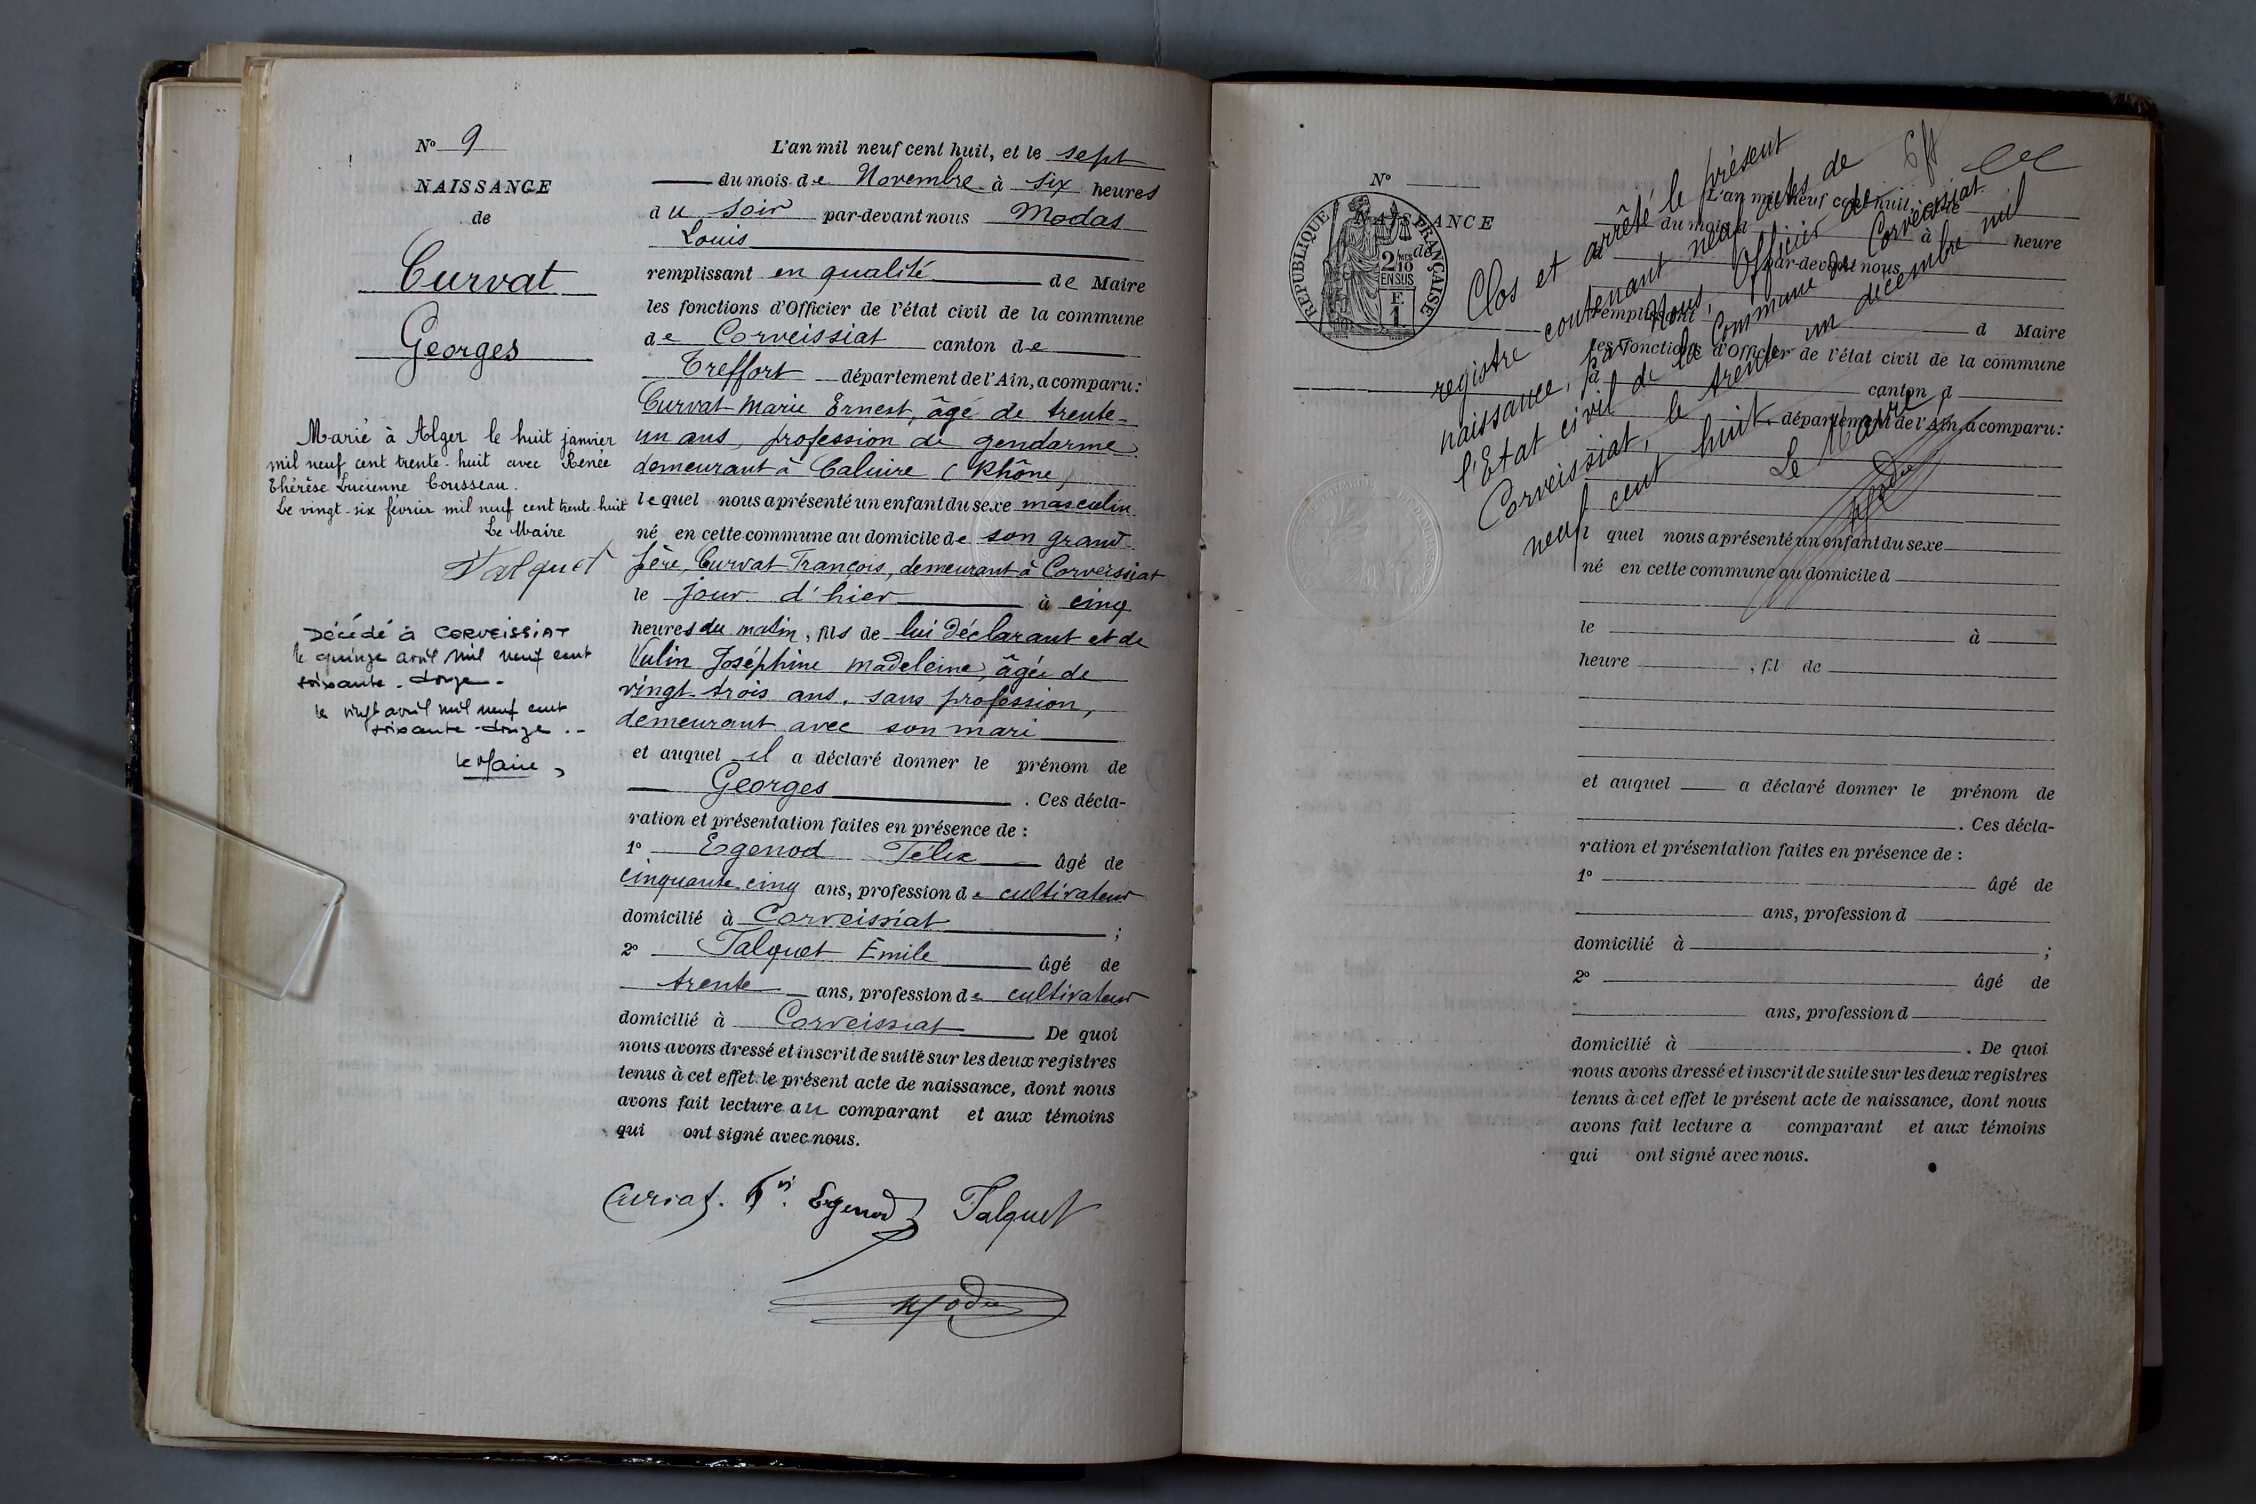 N° 9
NAISSANCE
de
Curvat
Georges
Marié à Alger le huit janvier
mil neuf cent trente-huit avec Renée
Thérèse Lucienne Cousseau.
Le vingt-six février mil neuf cent trente-huit
Le Maire
Falquet
Décédé à CORVEISSIAT
le quinze avril mil neuf cent
soixante-douze-
le vingt avril mil neuf cent
soixante-douze.-
Le Maire,
L'an mil neuf cent huit, et le sept
du mois de Novembre à six heures
du soir par-devant nous Modas
Louis
remplissant en qualité de Maire
les fonctions d'Officier de l'état civil de la commune
de Corveissiat canton de
Treffort département de l'Ain, a comparu:
Curvat Marie Ernest, âgé de trente-
un ans, profession de gendarme
demeurant à Caluire (Rhône)
lequel nous a présenté un enfant du sexe masculin
né en cette commune au domicile de son grand-
père, Curvat François, demeurant à Corveissiat
le jour d'hier à cinq
heures du matin, fils de lui déclarant et de
Vulin Joséphine Madeleine, âgée de
vingt-trois ans, sans profession,
demeurant avec son mari
et auquel il a déclaré donner le prénom de
Georges. Ces décla-
ration et présentation faites en présence de :
1° Egenod Félix âgé de
cinquante-cinq ans, profession de cultivateur
domicilié à Corveissiat ;
2° Falquet Emile âgé de
trente ans, profession de cultivateur
domicilié à Corveissiat De quoi
nous avons dressé et inscrit de suite sur les deux registres
tenus à cet effet le présent acte de naissance, dont nous
avons fait lecture au comparant et aux témoins
qui ont signé avec nous.
Curvat. Egenod Falquet
N°
NAISSANCE
de
RÉPUBLIQUE FRANÇAISE
2 MES
10
EN SUS
F.
1
Clos et arrêté le présent
registre contenant neuf actes de
naissance, par Nous, Officier de
l'Etat civil de la Commune de Corveissiat
Corveissiat, le trente un décembre mil
neuf cent huit.
Le Maire,
L'an mil neuf cent huit, et le
du mois d à heure
par-devant nous
remplissant d Maire
les fonctions d'Officier de l'état civil de la commune
canton d
département de l'Ain, a comparu:
quel nous a présenté un enfant du sexe
né en cette commune au domicile d
le à
heure , fil de
et auquel a déclaré donner le prénom de
. Ces décla-
ration et présentation faites en présence de :
1° âgé de
ans, profession d
domicilié à ;
2° âgé de
ans, profession d
domicilié à . De quoi
nous avons dressé et inscrit de suite sur les deux registres
tenus à cet effet le présent acte de naissance, dont nous
avons fait lecture a comparant et aux témoins
qui ont signé avec nous.